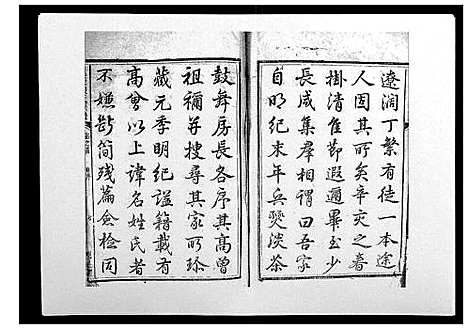 遼濶丁繁有徒一本途
人因其所矣辛亥之春
掛清隹節遐邇畢至少
長咸集羣相謂曰吾家
自明紀末年兵燹淡茶
鼓舞房長各序其高曾
祖禰并搜尋其家所珍
藏元季明紀謚籍載有
高曾以上諱名姓氏者
不嫌斷簡殘篇僉檢同